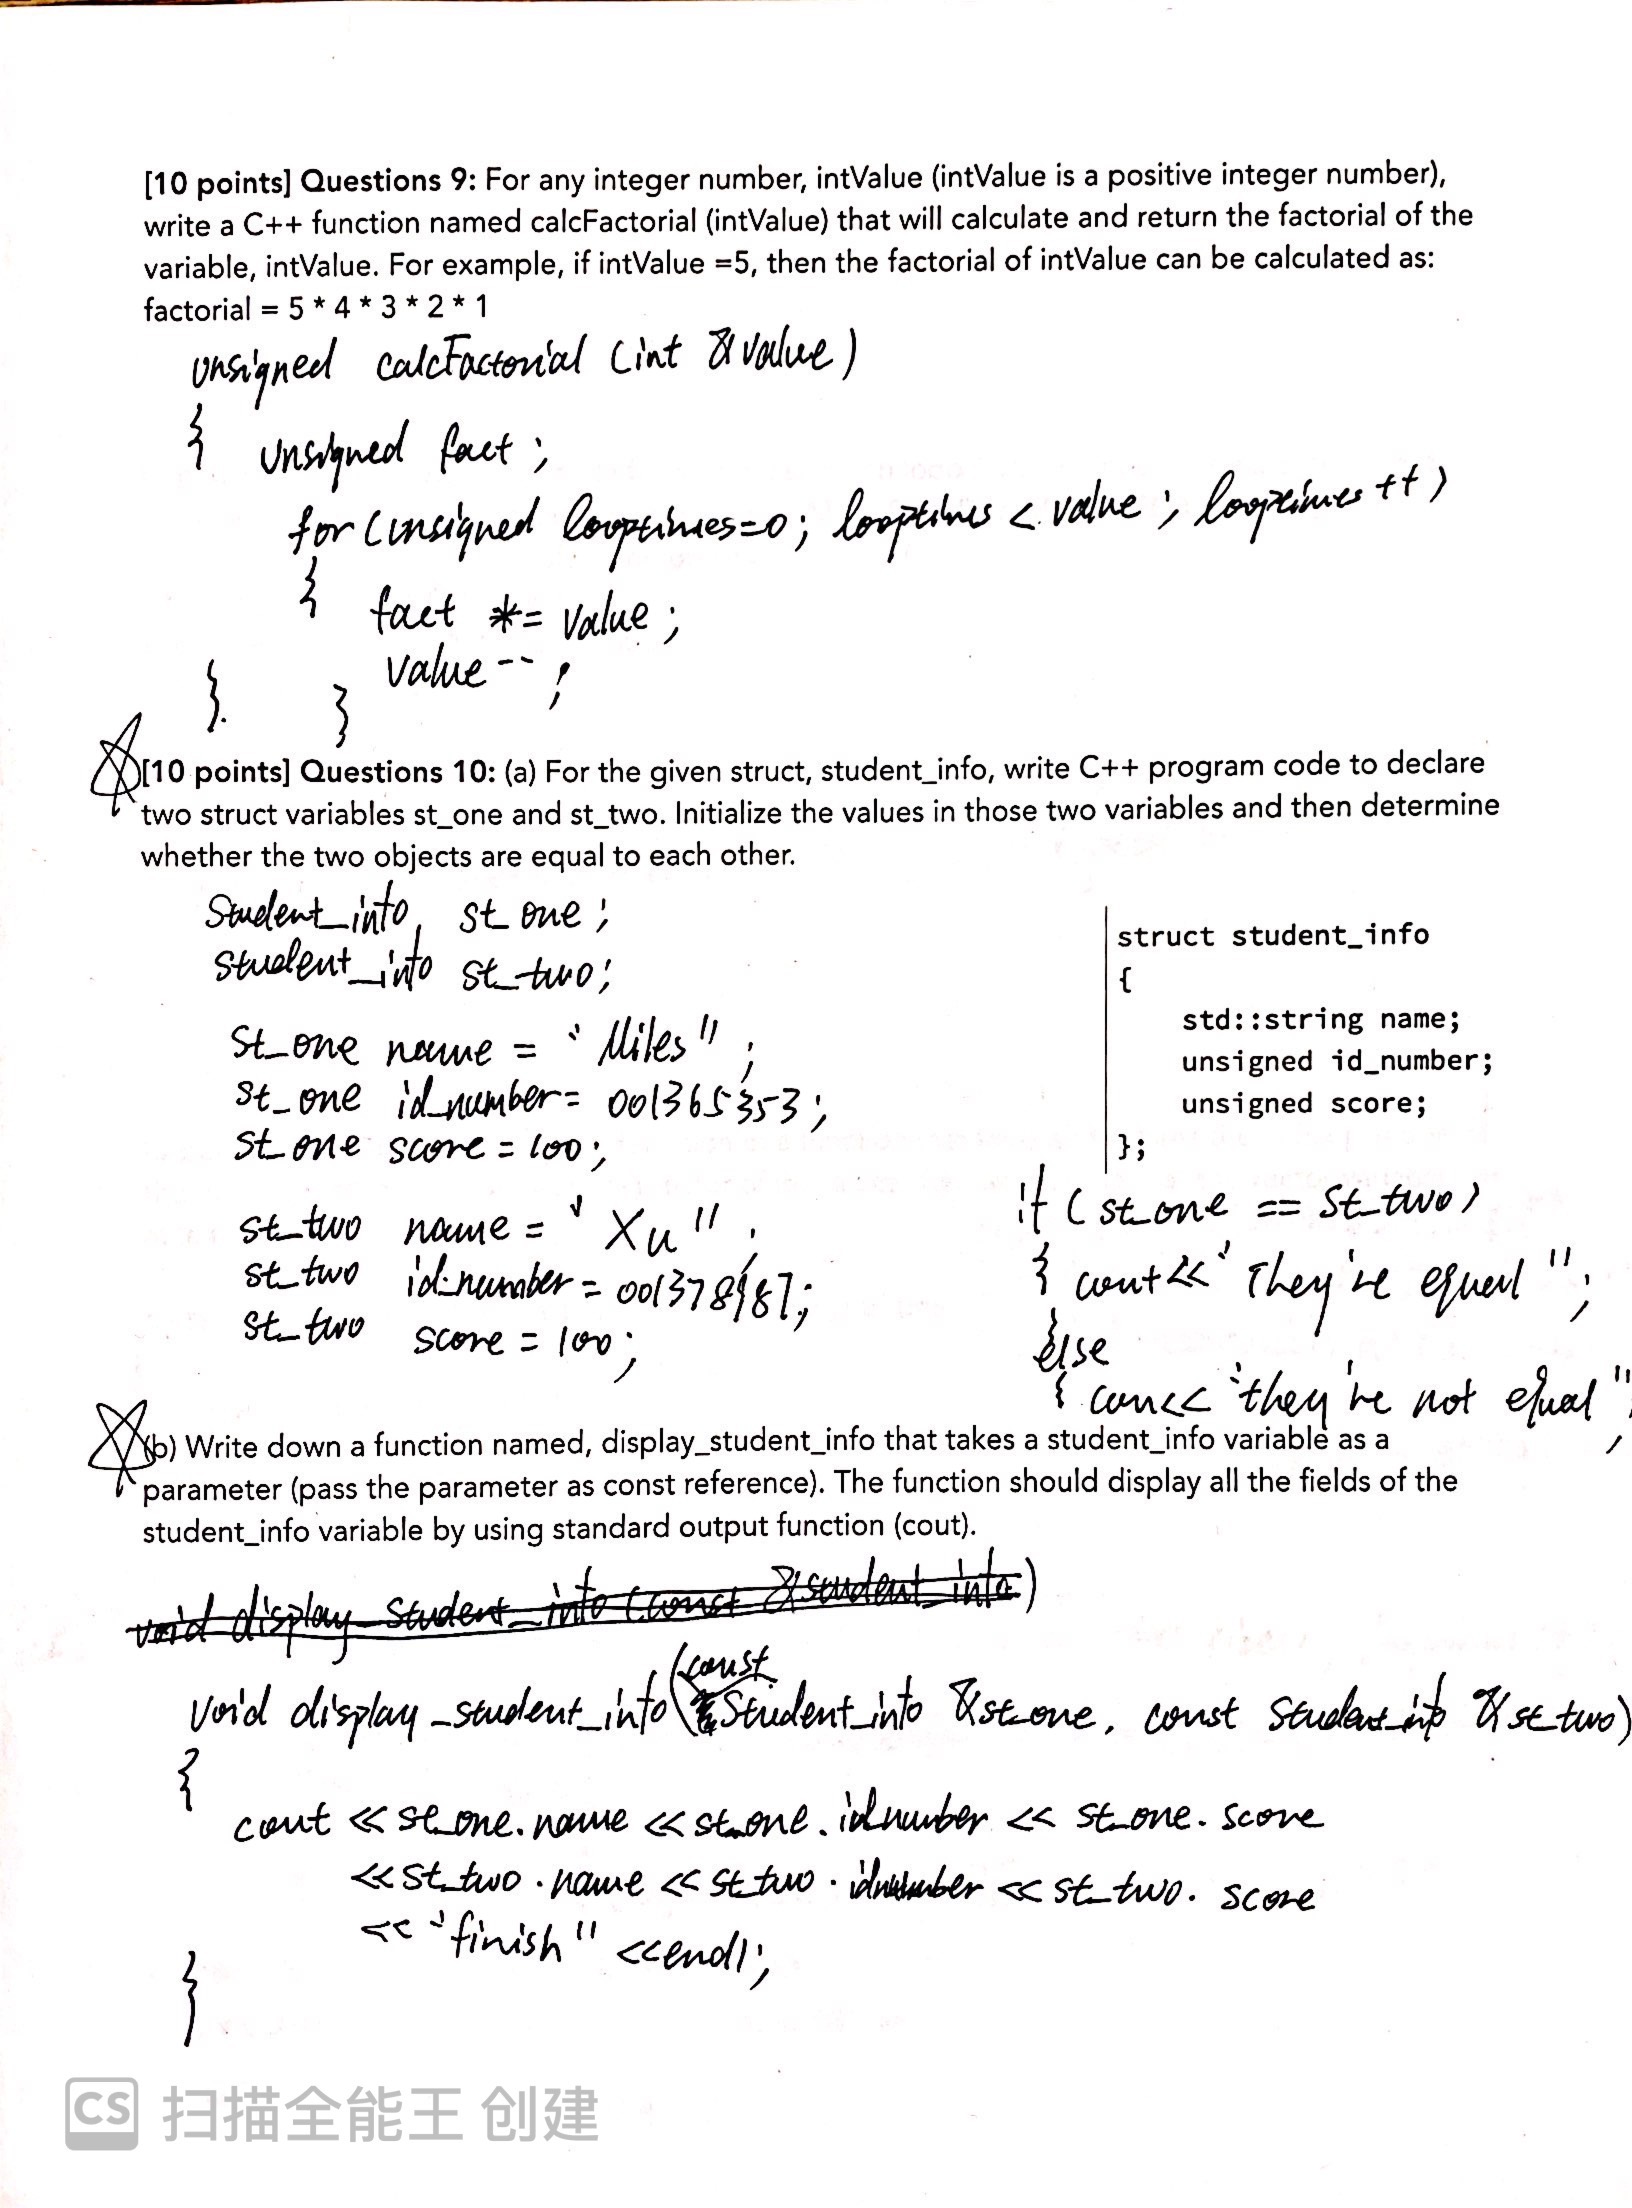 [10 points] Questions 9: For any integer number, intValue (intValue is a positive integer number),
write a C++ function named calcFactorial (intValue) that will calculate and return the factorial of the
variable, intValue. For example, if intValue =5, then the factorial of intValue can be calculated as:
factorial = 5 * 4 * 3 * 2 * 1
unsigned calcFactorial (int &value)
{ unsigned fact ;
for (unsigned looptimes=0; looptimes < value ; looptimes ++ )
{ fact *= value ;
value -- ;
} }
[10 points] Questions 10: (a) For the given struct, student_info, write C++ program code to declare
two struct variables st_one and st_two. Initialize the values in those two variables and then determine
whether the two objects are equal to each other.
Student_info st_one ;
student_info st_two ;
st_one name = "Miles" ;
st_one id_number = 001365353 ;
st_one score = 100 ;
st_two name = "Xu" ;
st_two id_number = 001378987 ;
st_two score = 100 ;
struct student_info
{
std::string name;
unsigned id_number;
unsigned score;
};
if ( st_one == st_two )
{ cout << "They're equal" ;
}
else
{ cout << "they're not equal" ;
(b) Write down a function named, display_student_info that takes a student_info variable as a
parameter (pass the parameter as const reference). The function should display all the fields of the
student_info variable by using standard output function (cout).
void display_student_info (const &student_info)
void display_student_info (const Student_info &st_one, const Student_info &st_two)
{
cout << st_one.name << st_one.idnumber << st_one.score
<< st_two.name << st_two.idnumber << st_two.score
<< "finish" << endl ;
}
CS 扫描全能王 创建